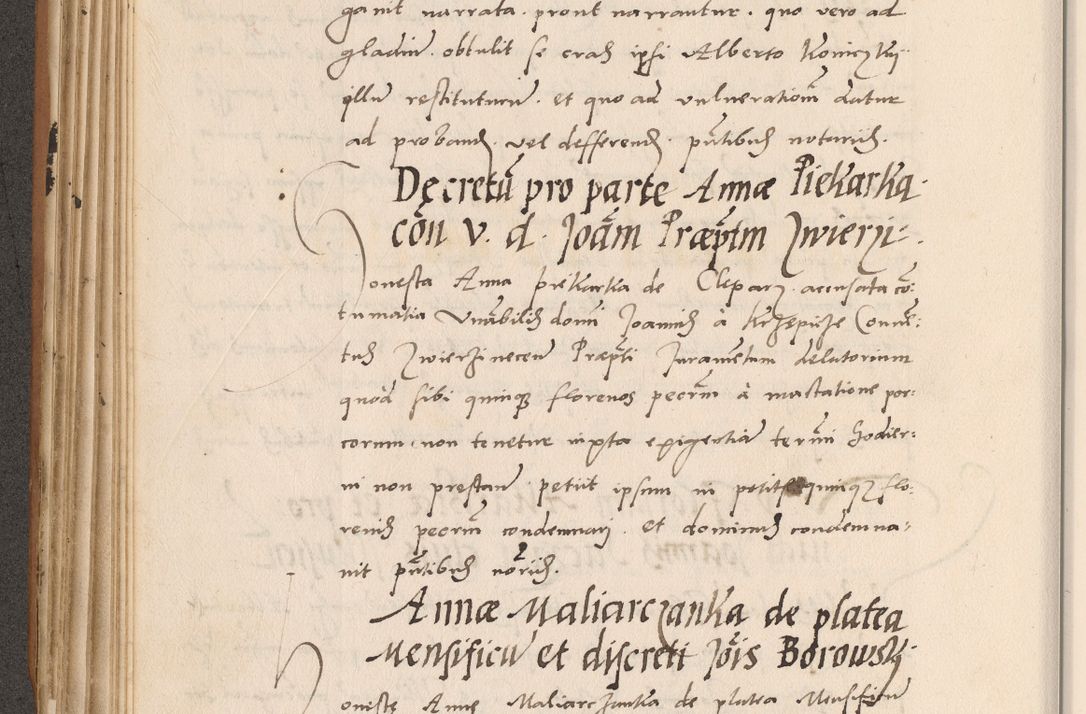 ganit narrata pront narrantur. quo vero ad
gladiu. obtulit se cras ipsi Alberto Konicżky
illu restiturum. et quo ad vulneratiom datur
ad proband. vel defferend. pntibus notariis.
Decretu pro parte Annæ Piekarka
con v. d. Joam Præptm Zwierzi:
Honesta Anna Piekarka de Clepars. accusata co:
tumatia Vnabilis domi Joannis à Krzepicze Conue:
tus Zwierzinecen Præpti Juramentum delatorium
quod sibi quinque florenos pecum à mactatione por:
corum. non tenetur iuxta exigentia termi hodier:
ni non prestan petiit ipsum in petitis quinque flo:
renis pecum condemnari. et dominus condemna:
uit pntibus noriis.
Annæ Maliarczanka de platea
Mensificu et discreti Jois Borowsky.
Honestę Annę Maliarczanka de platea Mensificu